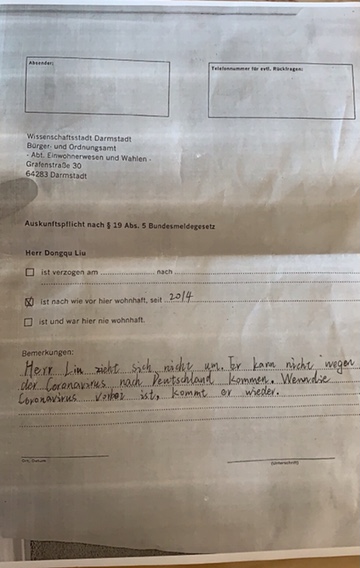 Absender:
Telefonnummer für evtl. Rückfragen:
Wissenschaftsstadt Darmstadt
Bürger- und Ordnungsamt
- Abt. Einwohnerwesen und Wahlen -
Grafenstraße 30
64283 Darmstadt
Auskunftspflicht nach § 19 Abs. 5 Bundesmeldegesetz
Herr Dongqu Liu
ist verzogen am nach
ist nach wie vor hier wohnhaft, seit 2014
ist und war hier nie wohnhaft.
Bemerkungen:
Herr Liu zieht sich nicht um. Er kann nicht wegen
der Coronavirus nach Deutschland kommen. Wenn die
Coronavirus vorbei ist, kommt er wieder.
Ort, Datum
Unterschrift